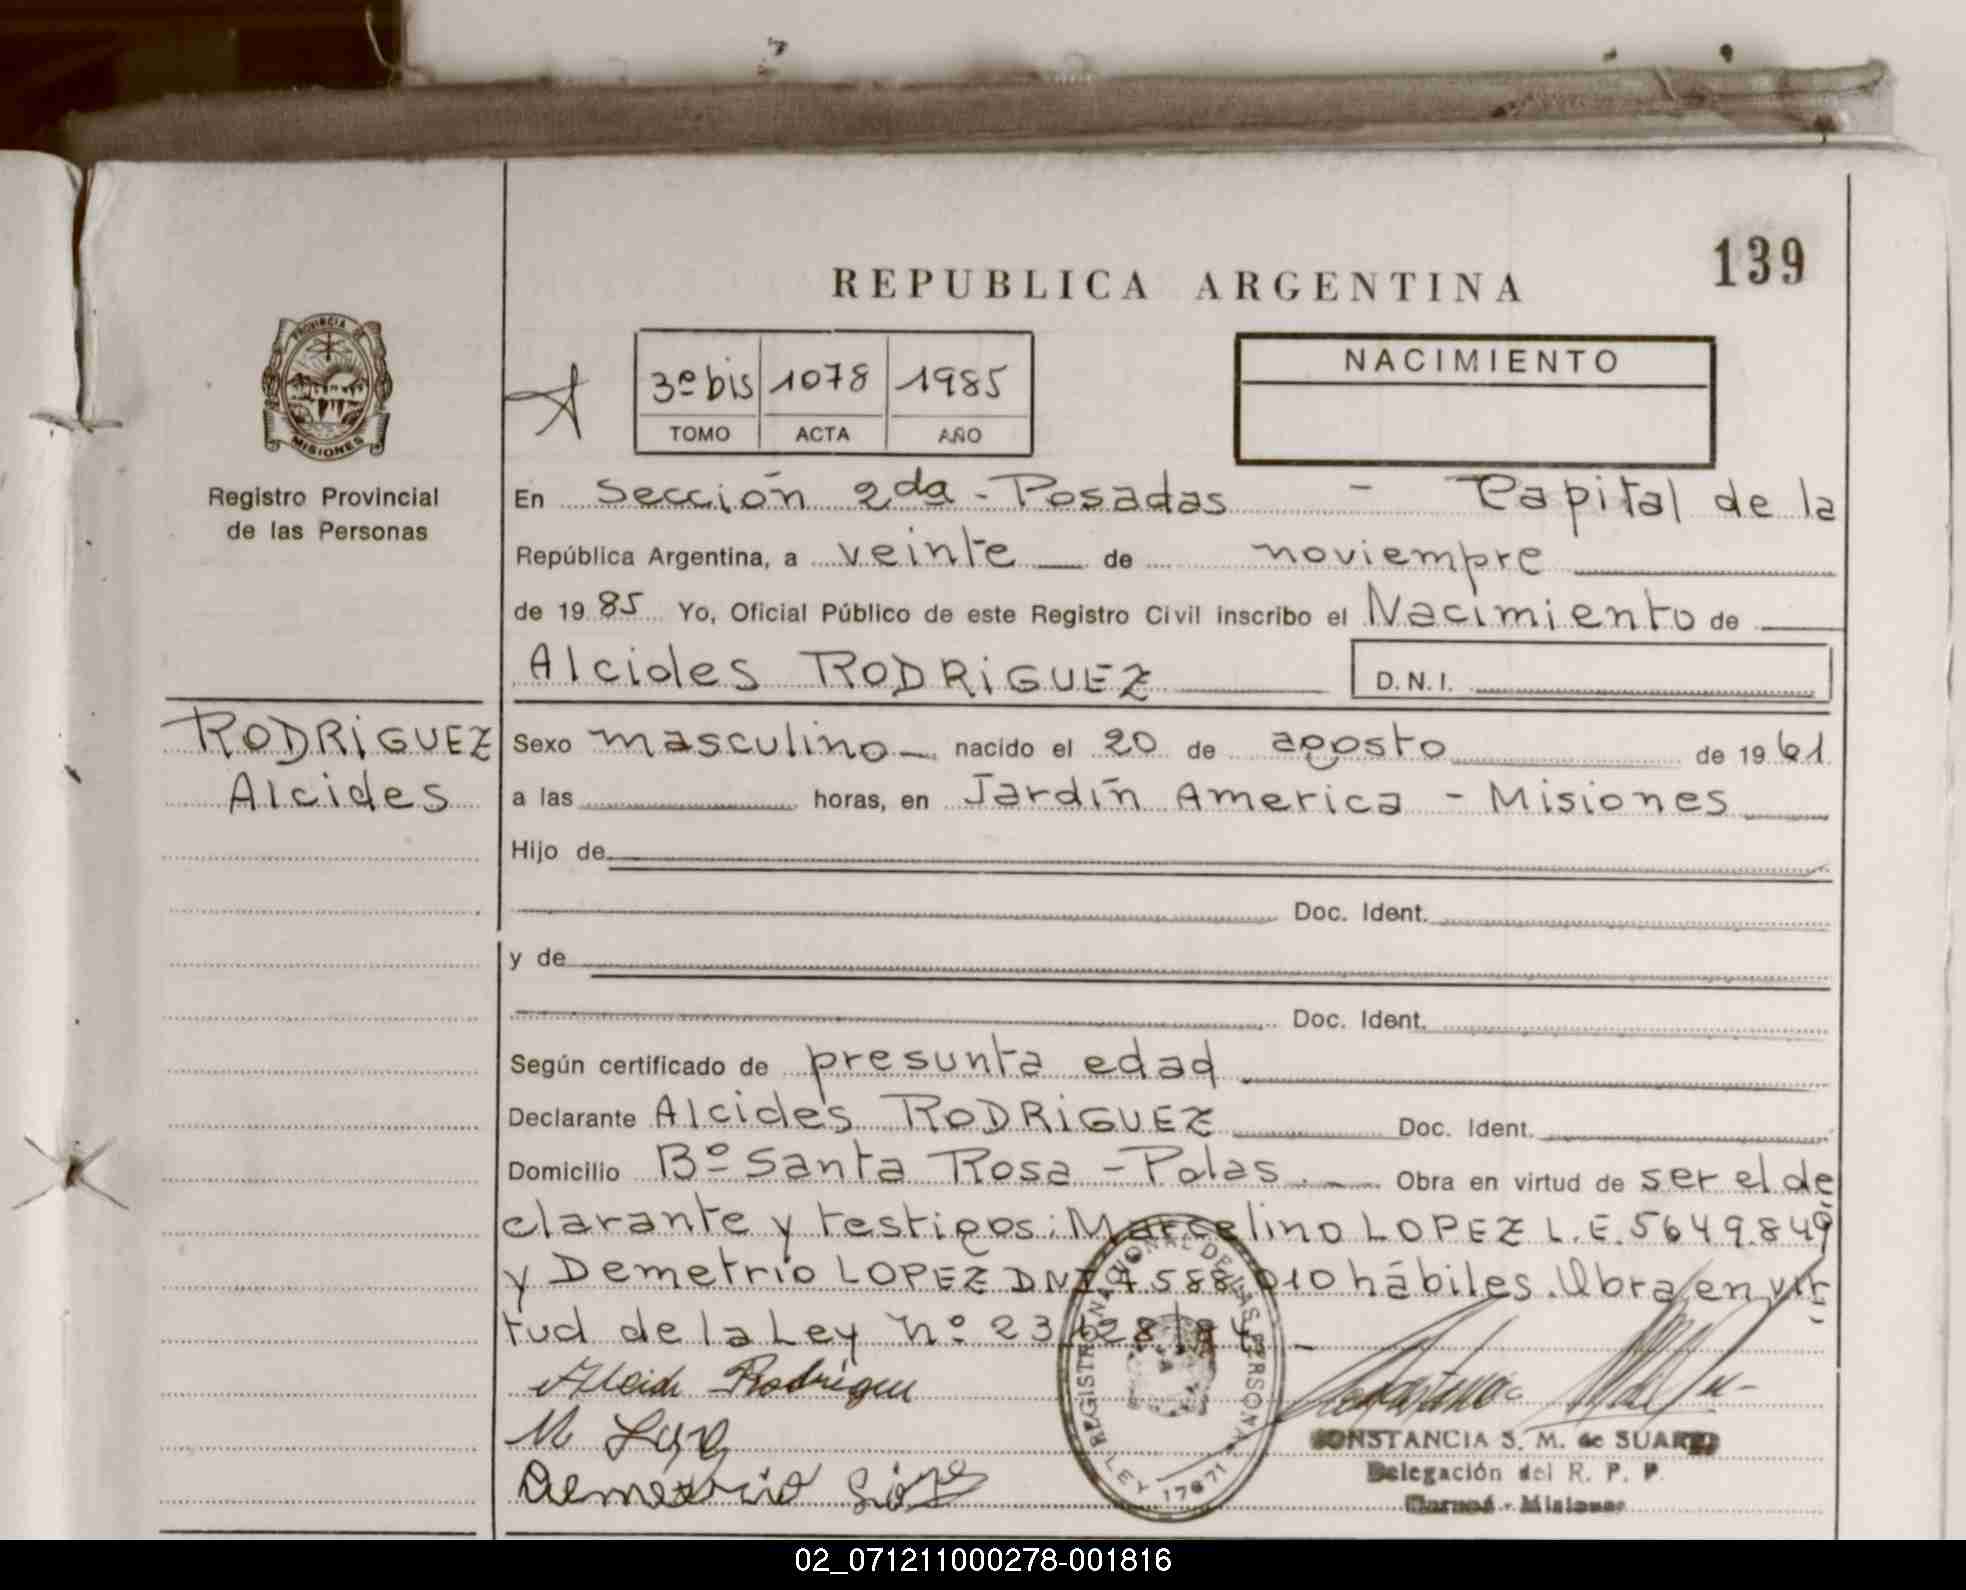 139
REPUBLICA ARGENTINA
PROVINCIA DE
MISIONES
Registro Provincial
de las Personas
3º bis 1078 1985
TOMO ACTA AÑO
NACIMIENTO
En Sección 2da - Posadas - Capital de la
República Argentina, a veinte de noviempre
de 1985 Yo, Oficial Público de este Registro Civil inscribo el Nacimiento de
Alcides RODRIGUEZ D.N.I.
RODRIGUEZ
Alcides
Sexo masculino nacido el 20 de agosto de 1961
a las horas, en Jardín America - Misiones
Hijo de
Doc. Ident.
y de
Doc. Ident.
Según certificado de presunta edad
Declarante Alcides RODRIGUEZ Doc. Ident.
Domicilio Bº Santa Rosa - Pdas. Obra en virtud de ser el de
clarante y testigos: Marcelino LOPEZ L.E. 5649.849
y Demetrio LOPEZ DNI 7.588.010 hábiles. Obra en vir
tud de la Ley nº 23
Rodriguez
M
Demetrio
REGISTRO NACIONAL DE LAS PERSONAS
LEY 17671
CONSTANCIA S. M. de SUAREZ
Delegación del R. P. P.
Misiones
02_071211000278-001816